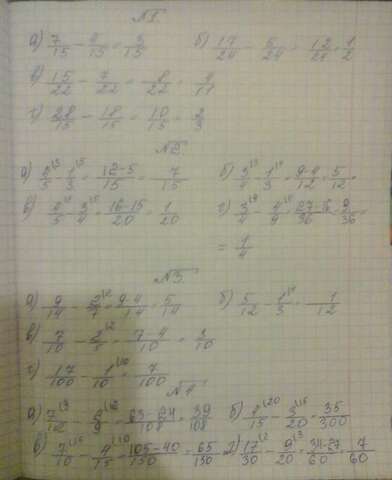 №1
а) 7/15 - 4/15 = 3/15 б) 17/24 - 5/24 = 12/24 = 1/2
в) 15/22 - 7/22 = 8/22 = 4/11
г) 28/15 - 18/15 = 10/15 = 2/3
№2
а) 4/5 - 1/3 = 12-5/15 = 7/15 б) 3/4 - 1/3 = 9-4/12 = 5/12
в) 4/5 - 3/4 = 16-15/20 = 1/20 г) 3/4 - 4/9 = 27-16/36 = 9/36 =
= 1/4
№3
а) 9/14 - 2/7 = 9-4/14 = 5/14 б) 5/12 - 1/3 = 1/12
в) 7/10 - 2/5 = 7-4/10 = 3/10
г) 17/100 - 1/10 = 7/100
№4
а) 7/12 - 2/9 = 63-24/108 = 39/108 б) 15 - 3/20 = 35/300
в) 7/10 - 4/15 = 105-40/150 = 65/150 г) 17/30 - 9/20 = 34-27/60 = 7/60